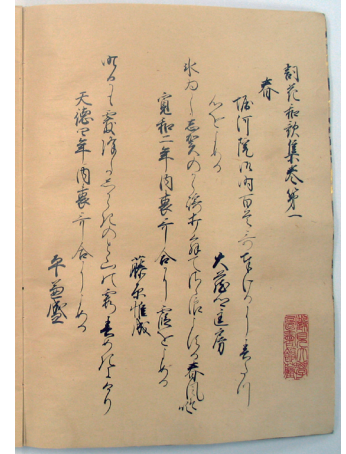 詞花和歌集巻第一
春
堀河院御時百首哥たてまつりけるに春たつ
心をよめる
大蔵卿匡房
氷ゐし志賀のから崎うちとけてさゝ浪よする春風そ吹
寛和二年内裏哥合に霞をよめる
藤原惟成
きのふかも霰ふりしはしからきのと山の霞春めきにけり
天徳四年内裏哥合によめる
平兼盛